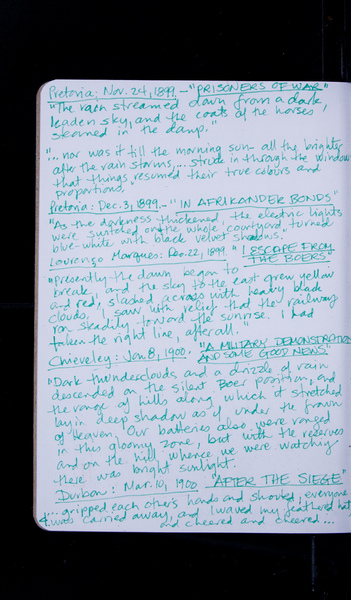 Pretoria: Nov. 24, 1899. - "PRISONERS OF WAR"
"The rain streamed down from a dark
leaden sky, and the coats of the horses
steamed in the damp."
"... nor was it till the morning sun - all the brighter
after the rain storms, ... strode in through the windows
that things resumed their true colours and
proportions."
Pretoria: Dec. 3, 1899. - "IN AFRIKANDER BONDS"
"As the darkness thickened, the electric lights
were switched on the whole courtyard turned
blue-white with black velvet shadows."
Lourenço Marques: Dec. 22, 1899. "I ESCAPE FROM
THE BOERS"
"Presently the dawn began to
break, and the sky to the east grew yellow
and red, slashed across with heavy black
clouds. I saw with relief that the railway
ran steadily toward the sunrise. I had
taken the right line, after all."
Chieveley: Jan. 8, 1900. "A MILITARY DEMONSTRATION
AND SOME GOOD NEWS"
"Dark thunderclouds and a drizzle of rain
descended on the silent Boer position, and
the range of hills along which it stretched
lay in deep shadow as if under the frown
of Heaven. Our batteries also were ranged
in this gloomy zone, but with the reserves
and on the hill whence we were watching
there was bright sunlight.
Durban: Mar. 10, 1900 "AFTER THE SIEGE"
"... gripped each other's hands and shouted, everyone
was carried away, and I waved my feathered hat,
and cheered and cheered ...